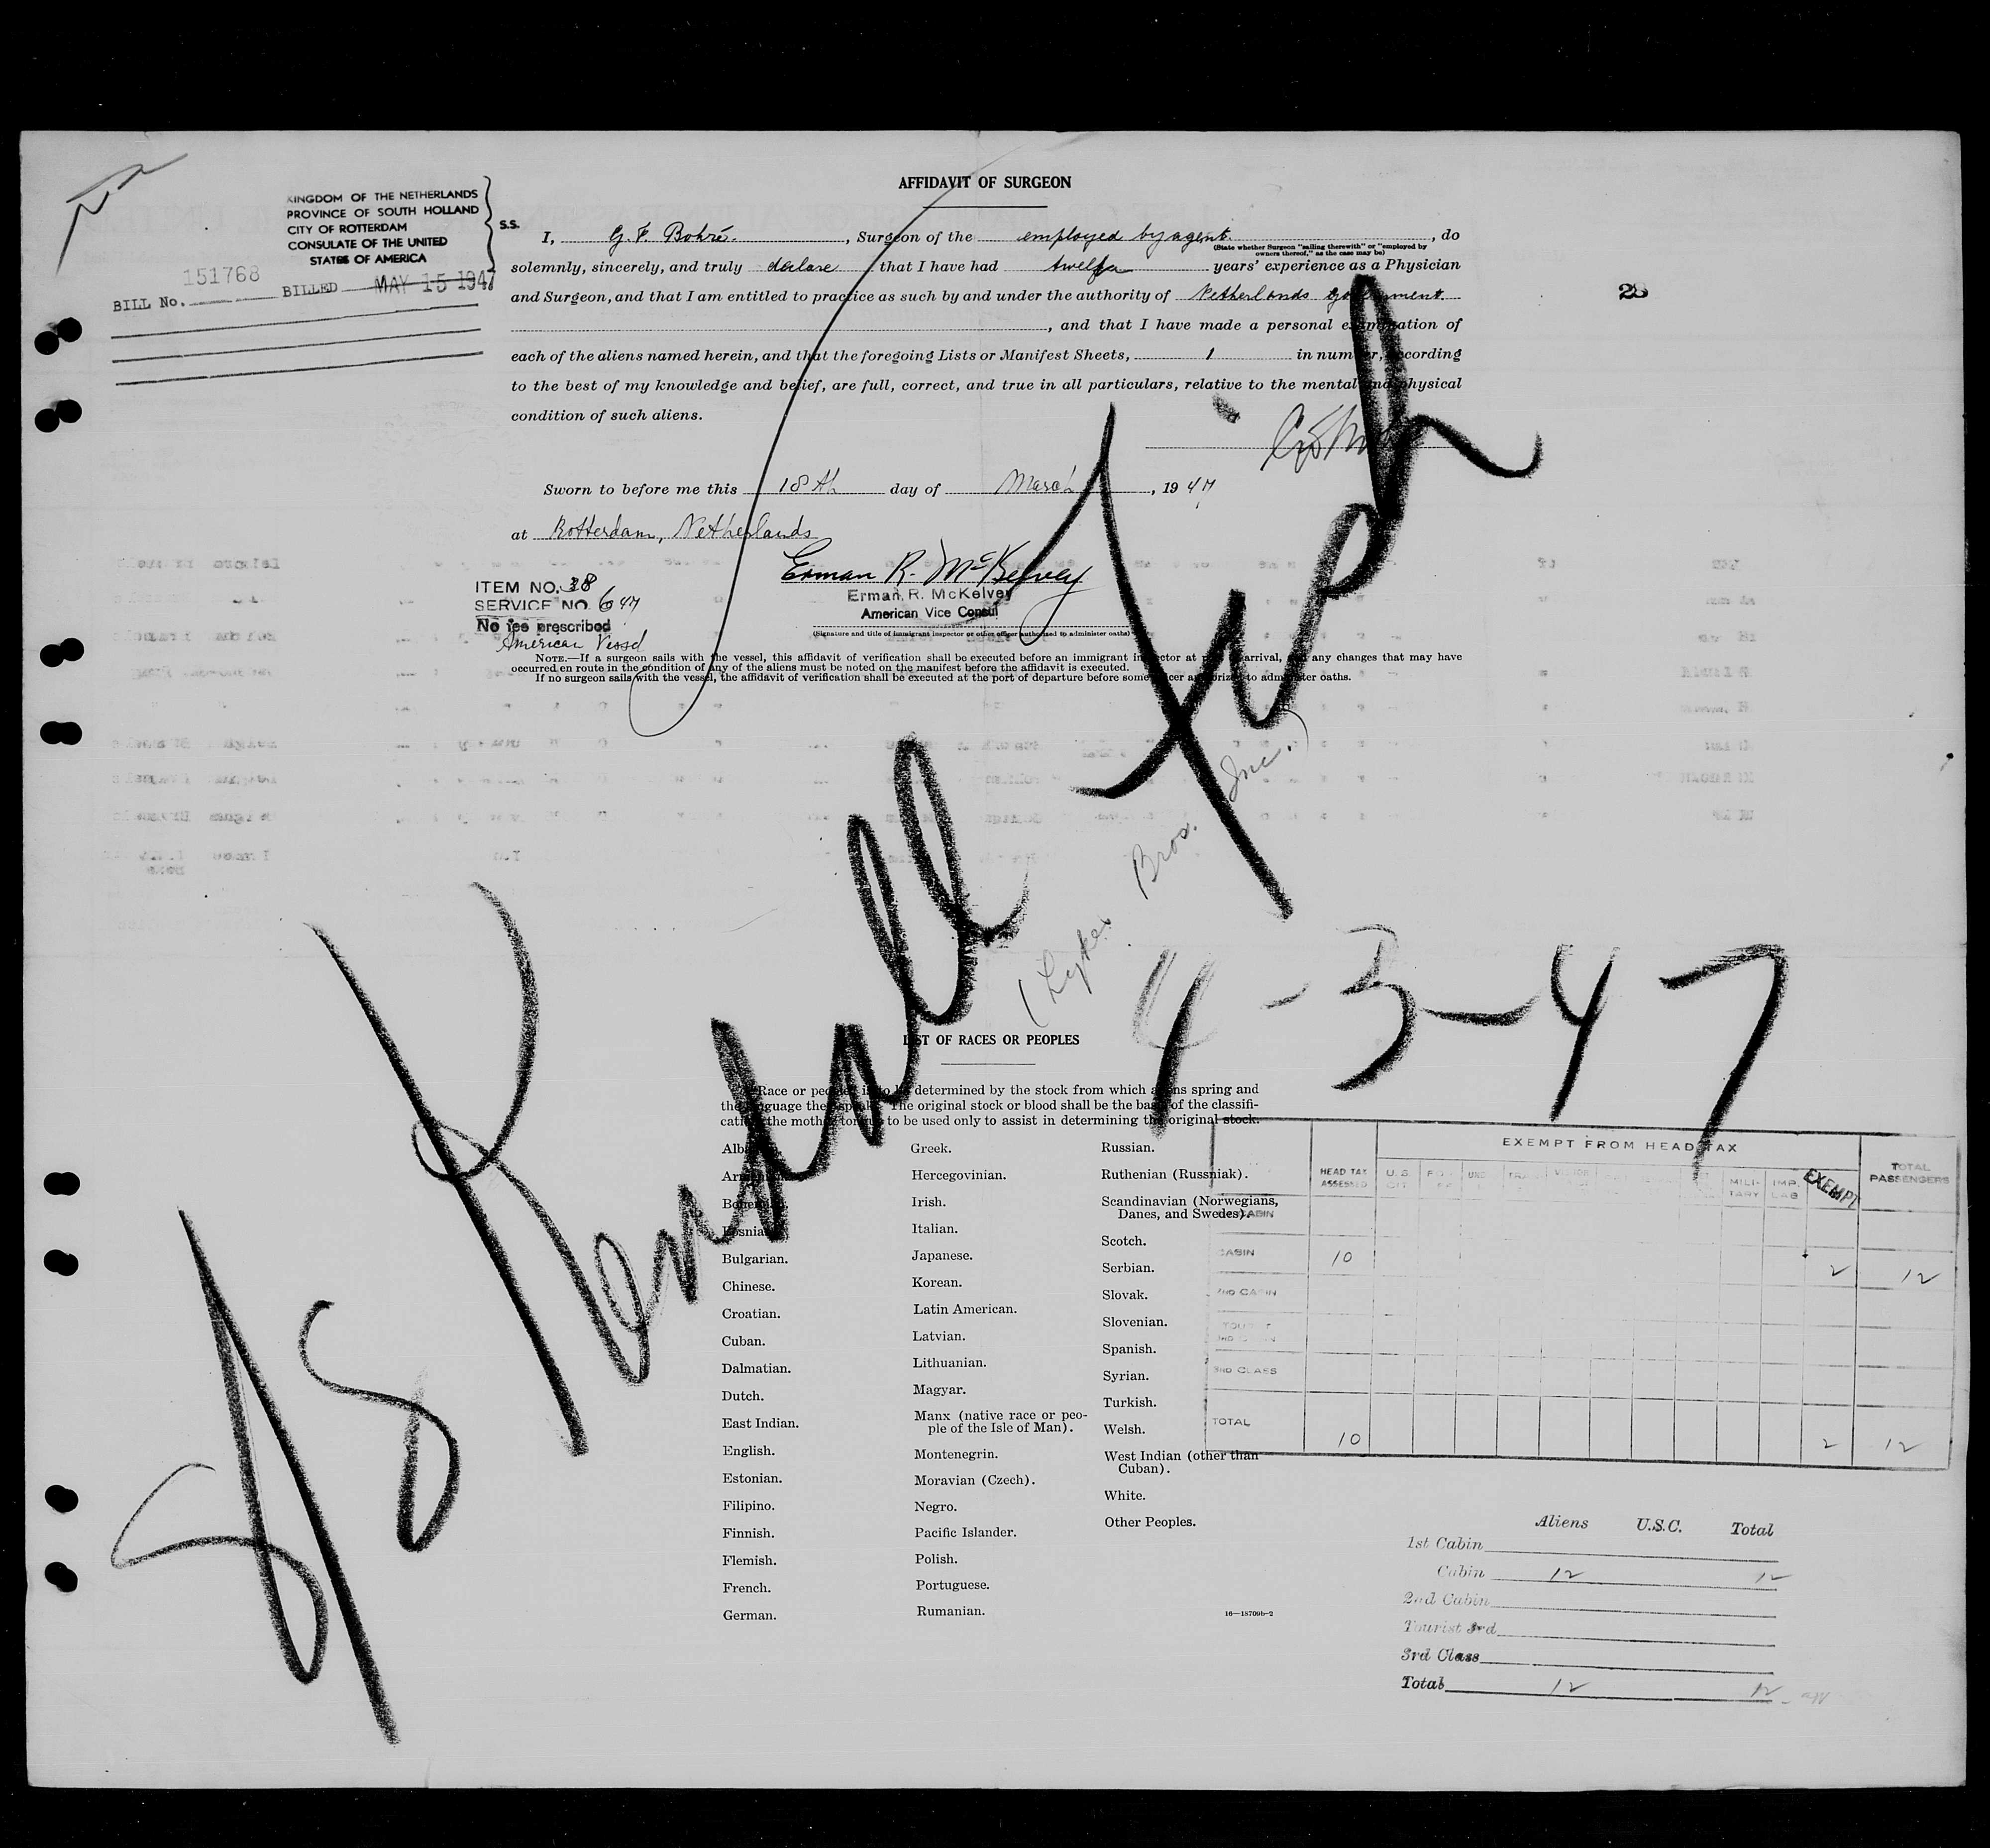 AFFIDAVIT OF SURGEON
KINGDOM OF THE NETHERLANDS
PROVINCE OF SOUTH HOLLAND
CITY OF ROTTERDAM
CONSULATE OF THE UNITED
STATES OF AMERICA
S.S.
151768
BILL No. BILLED MAY 15 1947
I, G. F. Bohré. , Surgeon of the employed by agent. , do
(State whether Surgeon "sailing therewith" or "employed by
owners thereof," as the case may be)
solemnly, sincerely, and truly declare that I have had years' experience as a Physician
and Surgeon, and that I am entitled to practice as such by and under the authority of Netherlands government.
28
, and that I have made a personal examination of
each of the aliens named herein, and that the foregoing Lists or Manifest Sheets, 1 in number, according
to the best of my knowledge and belief, are full, correct, and true in all particulars, relative to the mental and physical
condition of such aliens.
Sworn to before me this 18th day of March , 19 47
at Rotterdam, Netherlands
Erman R. McKelvey
Erman R. McKelvey
American Vice Consul
(Signature and title of immigrant inspector or other officer authorized to administer oaths)
ITEM NO. 38
SERVICE NO. 647
No fee prescribed
American Vessel
NOTE.—If a surgeon sails with the vessel, this affidavit of verification shall be executed before an immigrant inspector at port of arrival, and any changes that may have
occurred en route in the condition of any of the aliens must be noted on the manifest before the affidavit is executed.
If no surgeon sails with the vessel, the affidavit of verification shall be executed at the port of departure before some officer authorized to administer oaths.
S/S Kendall Fish
(Lykes Bros. Inc.)
4-3-47
LIST OF RACES OR PEOPLES
Race or people is to be determined by the stock from which aliens spring and
the language they speak. The original stock or blood shall be the basis of the classifi-
cation, the mother tongue to be used only to assist in determining the original stock.
Albanian.
Armenian.
Bohemian.
Bosnian.
Bulgarian.
Chinese.
Croatian.
Cuban.
Dalmatian.
Dutch.
East Indian.
English.
Estonian.
Filipino.
Finnish.
Flemish.
French.
German.
Greek.
Hercegovinian.
Irish.
Italian.
Japanese.
Korean.
Latin American.
Latvian.
Lithuanian.
Magyar.
Manx (native race or peo-
ple of the Isle of Man).
Montenegrin.
Moravian (Czech).
Negro.
Pacific Islander.
Polish.
Portuguese.
Rumanian.
Russian.
Ruthenian (Russniak).
Scandinavian (Norwegians,
Danes, and Swedes).
Scotch.
Serbian.
Slovak.
Slovenian.
Spanish.
Syrian.
Turkish.
Welsh.
West Indian (other than
Cuban).
White.
Other Peoples.
16—18709b-2
EXEMPT FROM HEAD TAX
HEAD TAX ASSESSED U.S. CIT. MILI- TARY IMP. LAB EXEMPT TOTAL PASSENGERS
CABIN 10 2 12
2ND CABIN
3RD CLASS
TOTAL 10 2 12
Aliens U.S.C. Total
1st Cabin
Cabin 12 12
2nd Cabin
Tourist 3rd
3rd Class
Total 12 12